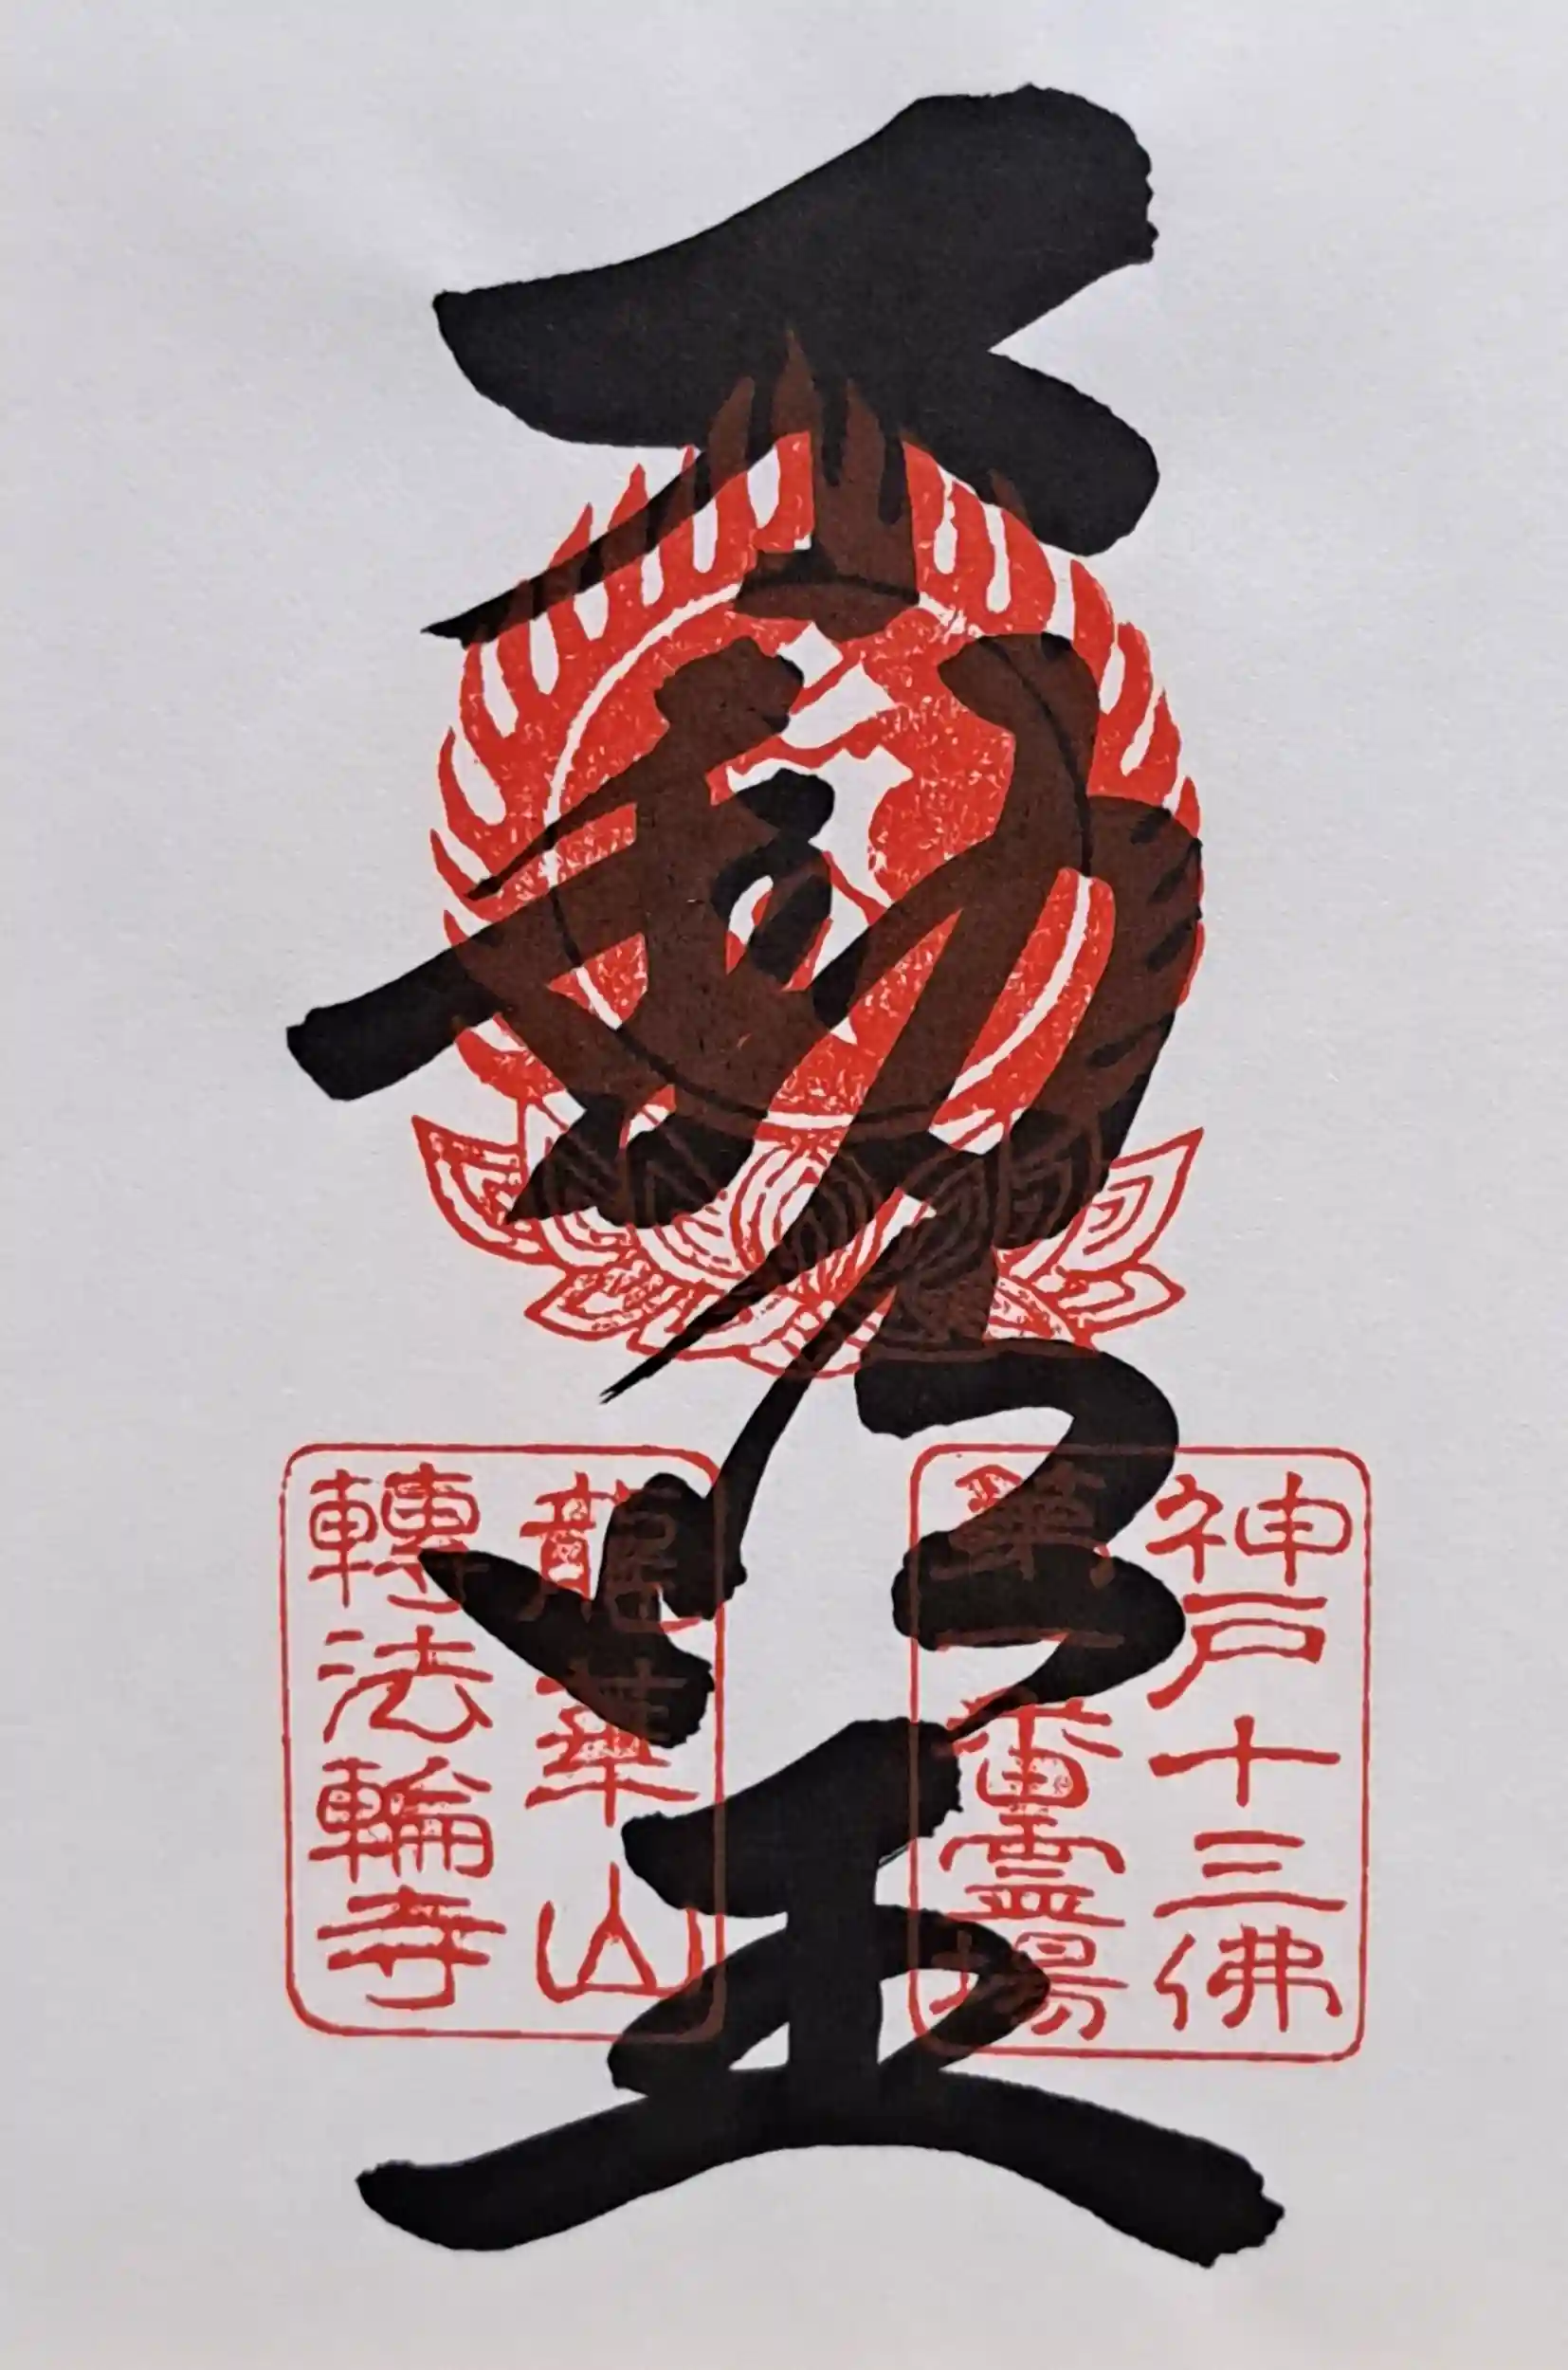 不動明王
神戸十三佛
第一番霊場
龍華山
轉法輪寺